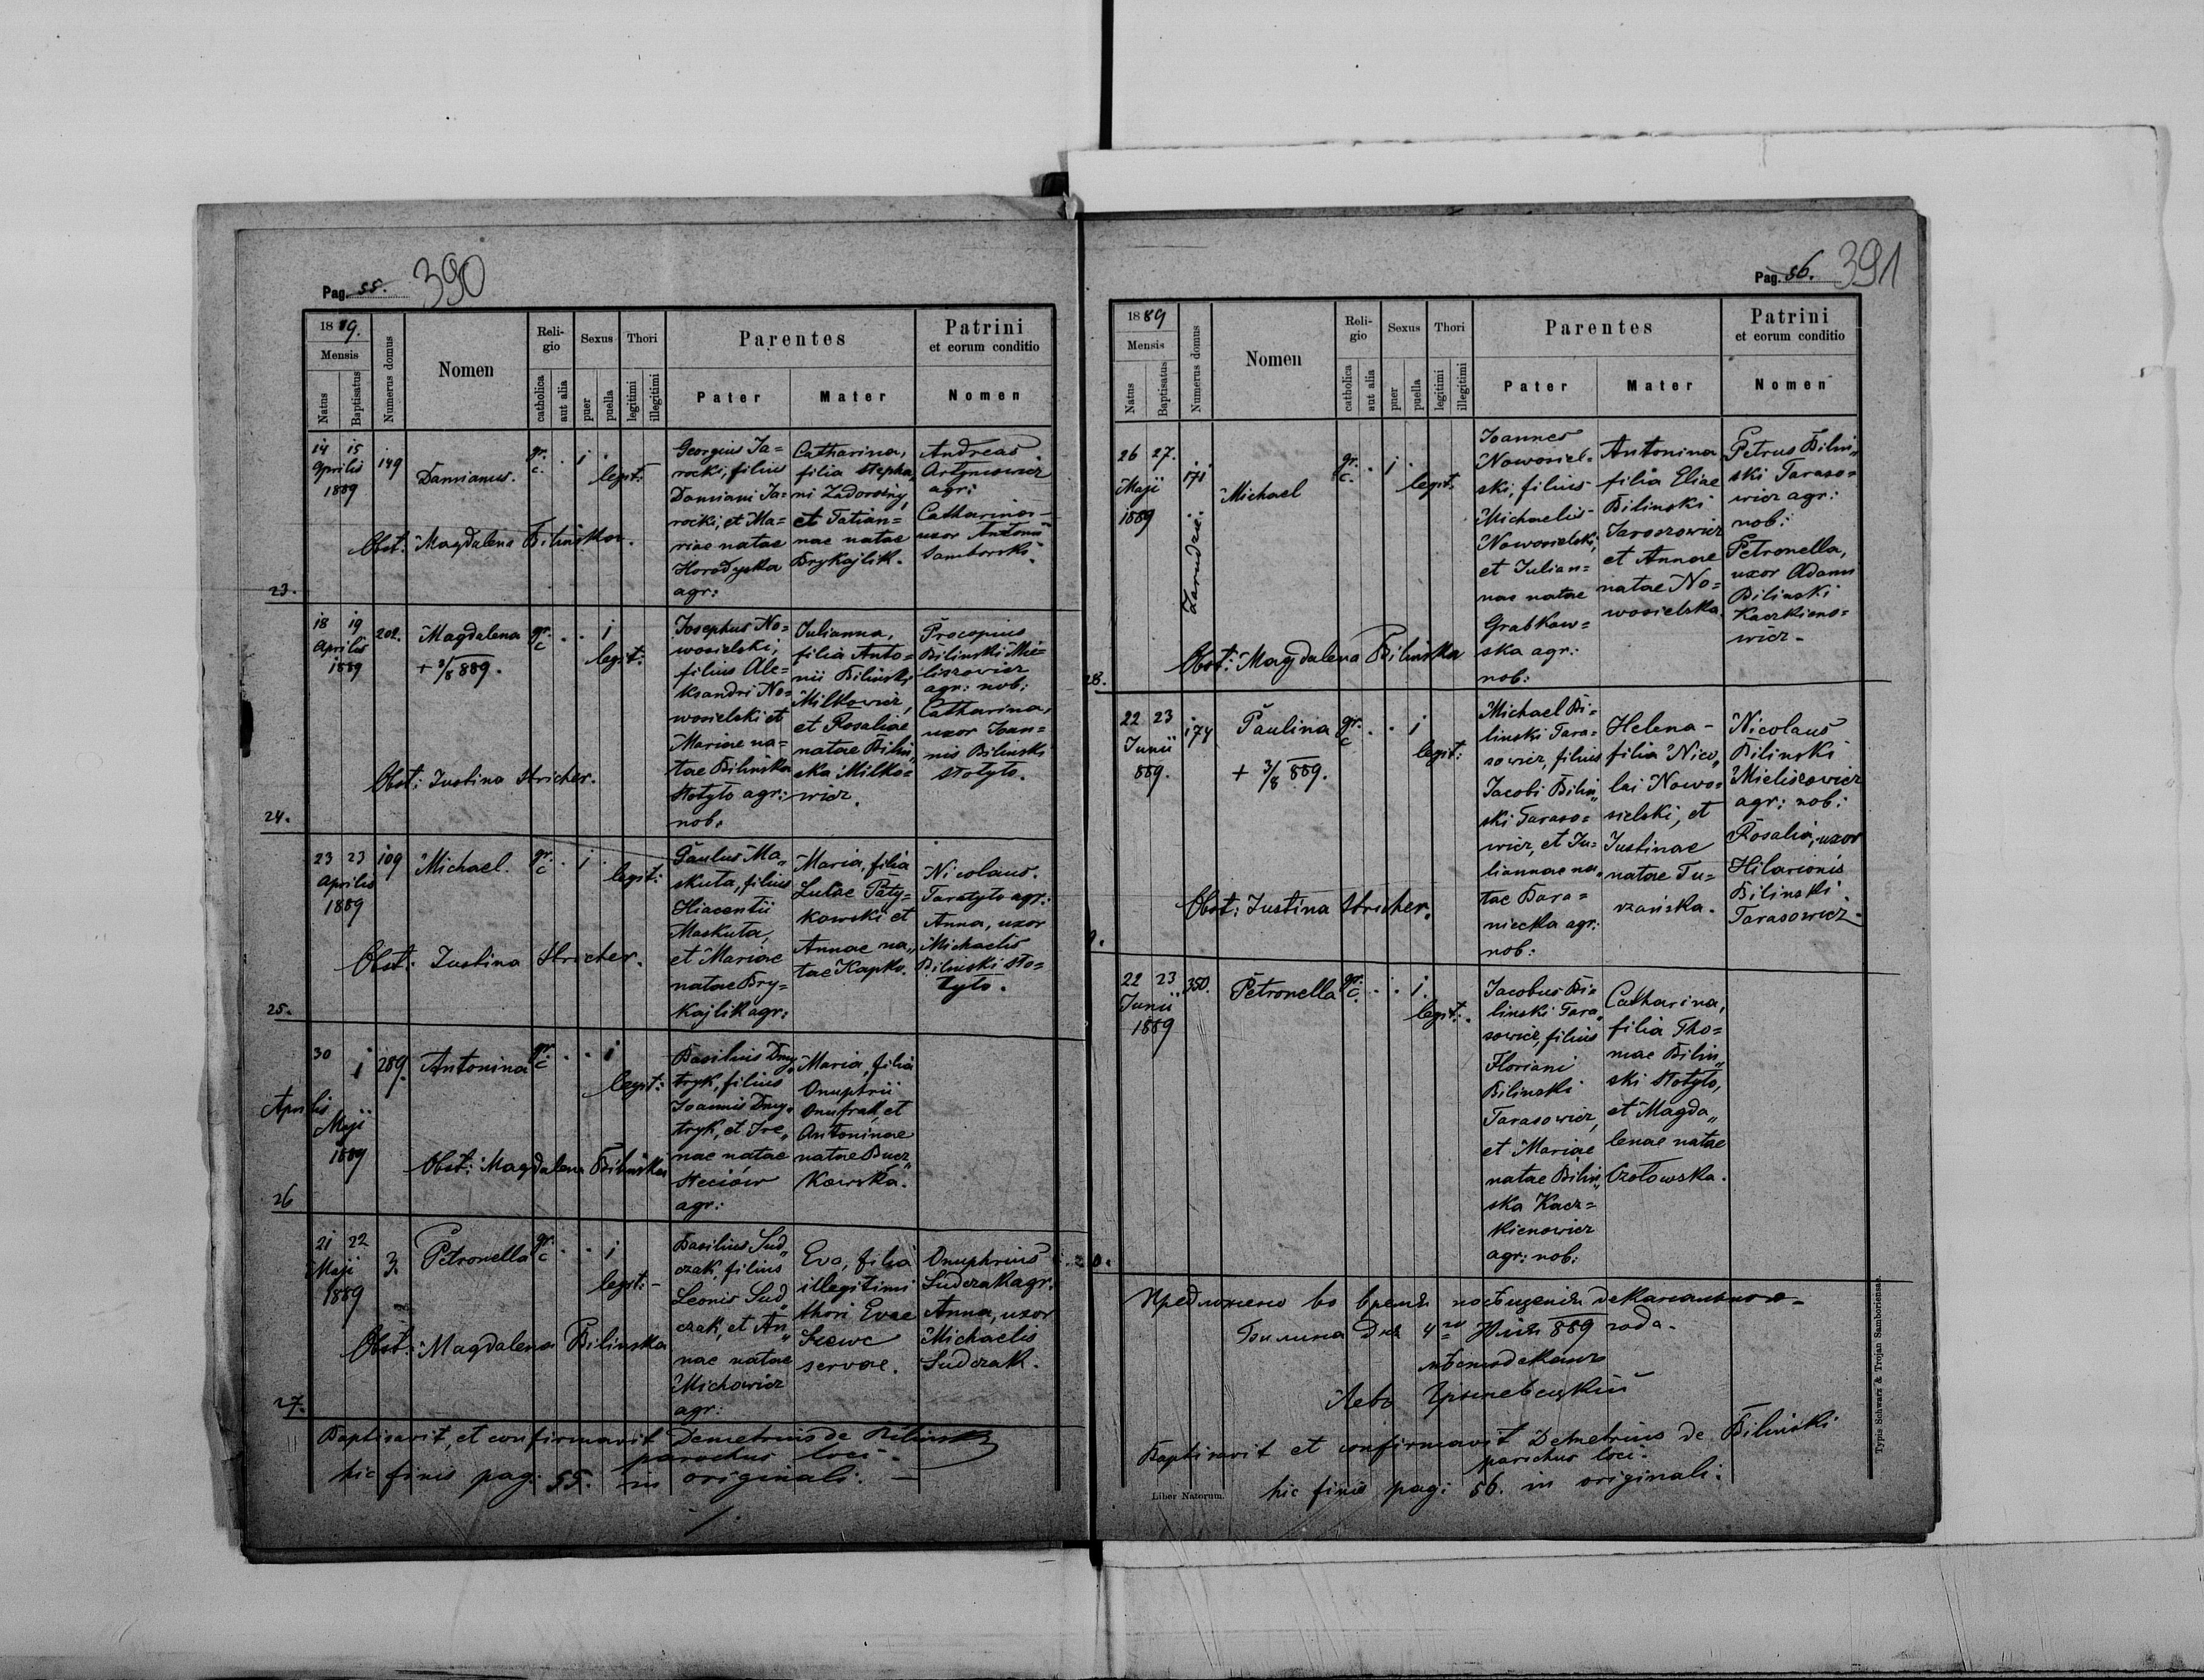 Pag. 55. 390
18 89.
Mensis
Natus
Baptisatus
Numerus domus
Nomen
Reli-
gio
catholica
aut alia
Sexus
puer
puella
Thori
legitimi
illegitimi
Parentes
Pater
Mater
Patrini
et eorum conditio
Nomen
23.
14 15
Aprilis
1889
149
Damianus.
gr.
c.
1
legit:
Obst: Magdalena Bilińska.
Georgius Ja=
rocki, filius
Damiani Ja=
rocki, et Ma=
riae natae
Horodyska
agr:
Catharina,
filia Stepha„
ni Zadorożny,
et Tatian=
nae natae
Brykajlik.
Andreas
Artymowicz
agr:
Catharina
uxor Antonii
Samborski.
24.
18 19
Aprilis
1889
202.
Magdalena
+ 3/8 889.
gr.
c
1
legit:
Obst: Justina Stricher.
Josephus No=
wosielski,
filius Ale=
ksandri No=
wosielski et
Mariae na=
tae Bilińska
Stotyło agr:
nob:
Julianna,
filia Anto=
nii Biliński
Milkowicz,
et Rosaliae
natae Biliń„
ska Milko=
wicz.
Procopius
Biliński Mie=
liszowicz
agr: nob:
Catharina,
uxor Joan=
nis Biliński
Stotyło.
25.
23 23
Aprilis
1889
109
Michael.
gr.
c
1
legit:
Obst: Justina Stricher.
Paulus Ma„
skuta, filius
Hiacentii
Maskuta,
et Mariae
natae Bry=
kajlik agr:
Maria, filia
Lucae Paty=
kowski et
Annae na„
tae Kapko.
Nicolaus
Taratyło agr:
Anna, uxor
Michaelis
Biliński Sto=
tyło.
26
30
Aprilis
1
Maji
1889
289.
Antonina
gr.
c
1
legit:
Obst: Magdalena Bilińska
Basilius Dmy„
tryk, filius
Joannis Dmy„
tryk, et Ire„
nae natae
Steciów
agr:
Maria, filia
Onuphrii
Onufrak, et
Antoninae
natae Bucz„
kowska.
27.
21 22
Maji
1889
3.
Petronella
gr.
c
1
legit:
Obst: Magdalena Bilinska
Basilius Sud„
czak, filius
Leonis Sud„
czak, et An„
nae natae
Michowicz
agr:
Eva, filia
illegitimi
thori Evae
Szewc
servae.
Onuphrius
Sudczak agr.
Anna, uxor
Michaelis
Sudczak.
Baptisavit, et confirmavit Demetrius de Bilinski
parochus loci.
hic finis pag: 55. in originali.
Pag. 56. 391
18 89
Mensis
Natus
Baptisatus
Numerus domus
Nomen
Reli-
gio
catholica
aut alia
Sexus
puer
puella
Thori
legitimi
illegitimi
Parentes
Pater
Mater
Patrini
et eorum conditio
Nomen
28.
26 27.
Maji
1889
171.
Zarudzie:
Michael
gr.
c.
1
legit:
Obst: Magdalena Bilińska
Joannes
Nowosiel=
ski, filius
Michaelis
Nowosielski,
et Julian=
nae natae
Grabkow=
ska agr:
nob:
Antonina
filia Eliae
Bilinski
Jaroszowicz
et Annae
natae No=
wosielska.
Petrus Biliń„
ski Taraso=
wicz agr:
nob:
Petronella,
uxor Adami
Bilinski
Kaczkieno=
wicz.
22 23
Junii
889.
174
Paulina
+ 3/8 889.
gr.
c
1
legit:
Obst: Justina Stricher.
Michael Bi=
linski Tara=
sowicz, filius
Jacobi Biliń„
ski Taraso=
wicz, et Ju=
liannae na„
tae Bara=
niecka agr:
nob:
Helena
filia Nico„
lai Nowo=
sielski, et
Justinae
natae Tu=
rzańska.
Nicolaus
Bilinski
Mieliszowicz
agr: nob:
Rosalia, uxor
Hilarionis
Bilinski
Tarasowicz
22 23
Junii
1889
350.
Petronella
gr.
c.
1.
legit:
Jacobus Bi=
linski Tara„
sowicz, filius
Floriani
Bilinski
Tarasowicz,
et Mariae
natae Biliń„
ska Kacz=
kienowicz
agr: nob:
Catharina,
filia Tho=
mae Biliń„
ski Stotyło,
et Magda„
lenae natae
Czołowska.
Предложено во время посѣщенія деканального
Билина дня 4го Юлія 889 года.
Левъ
Baptisavit et confirmavit Demetrius de Biliński
parochus loci.
hic finis pag: 56. in originali.
Liber Natorum.
Typis Schwarz & Trojan Samboriensae.